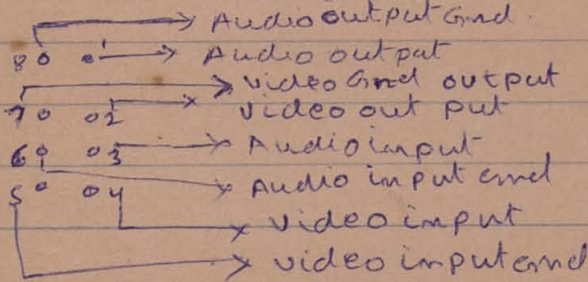 Audio output Gnd
8 1 Audio output
Video Gnd output
7 2 Video out put
6 3 Audio input
Audio input Gnd
5 4
Video input
Video input Gnd